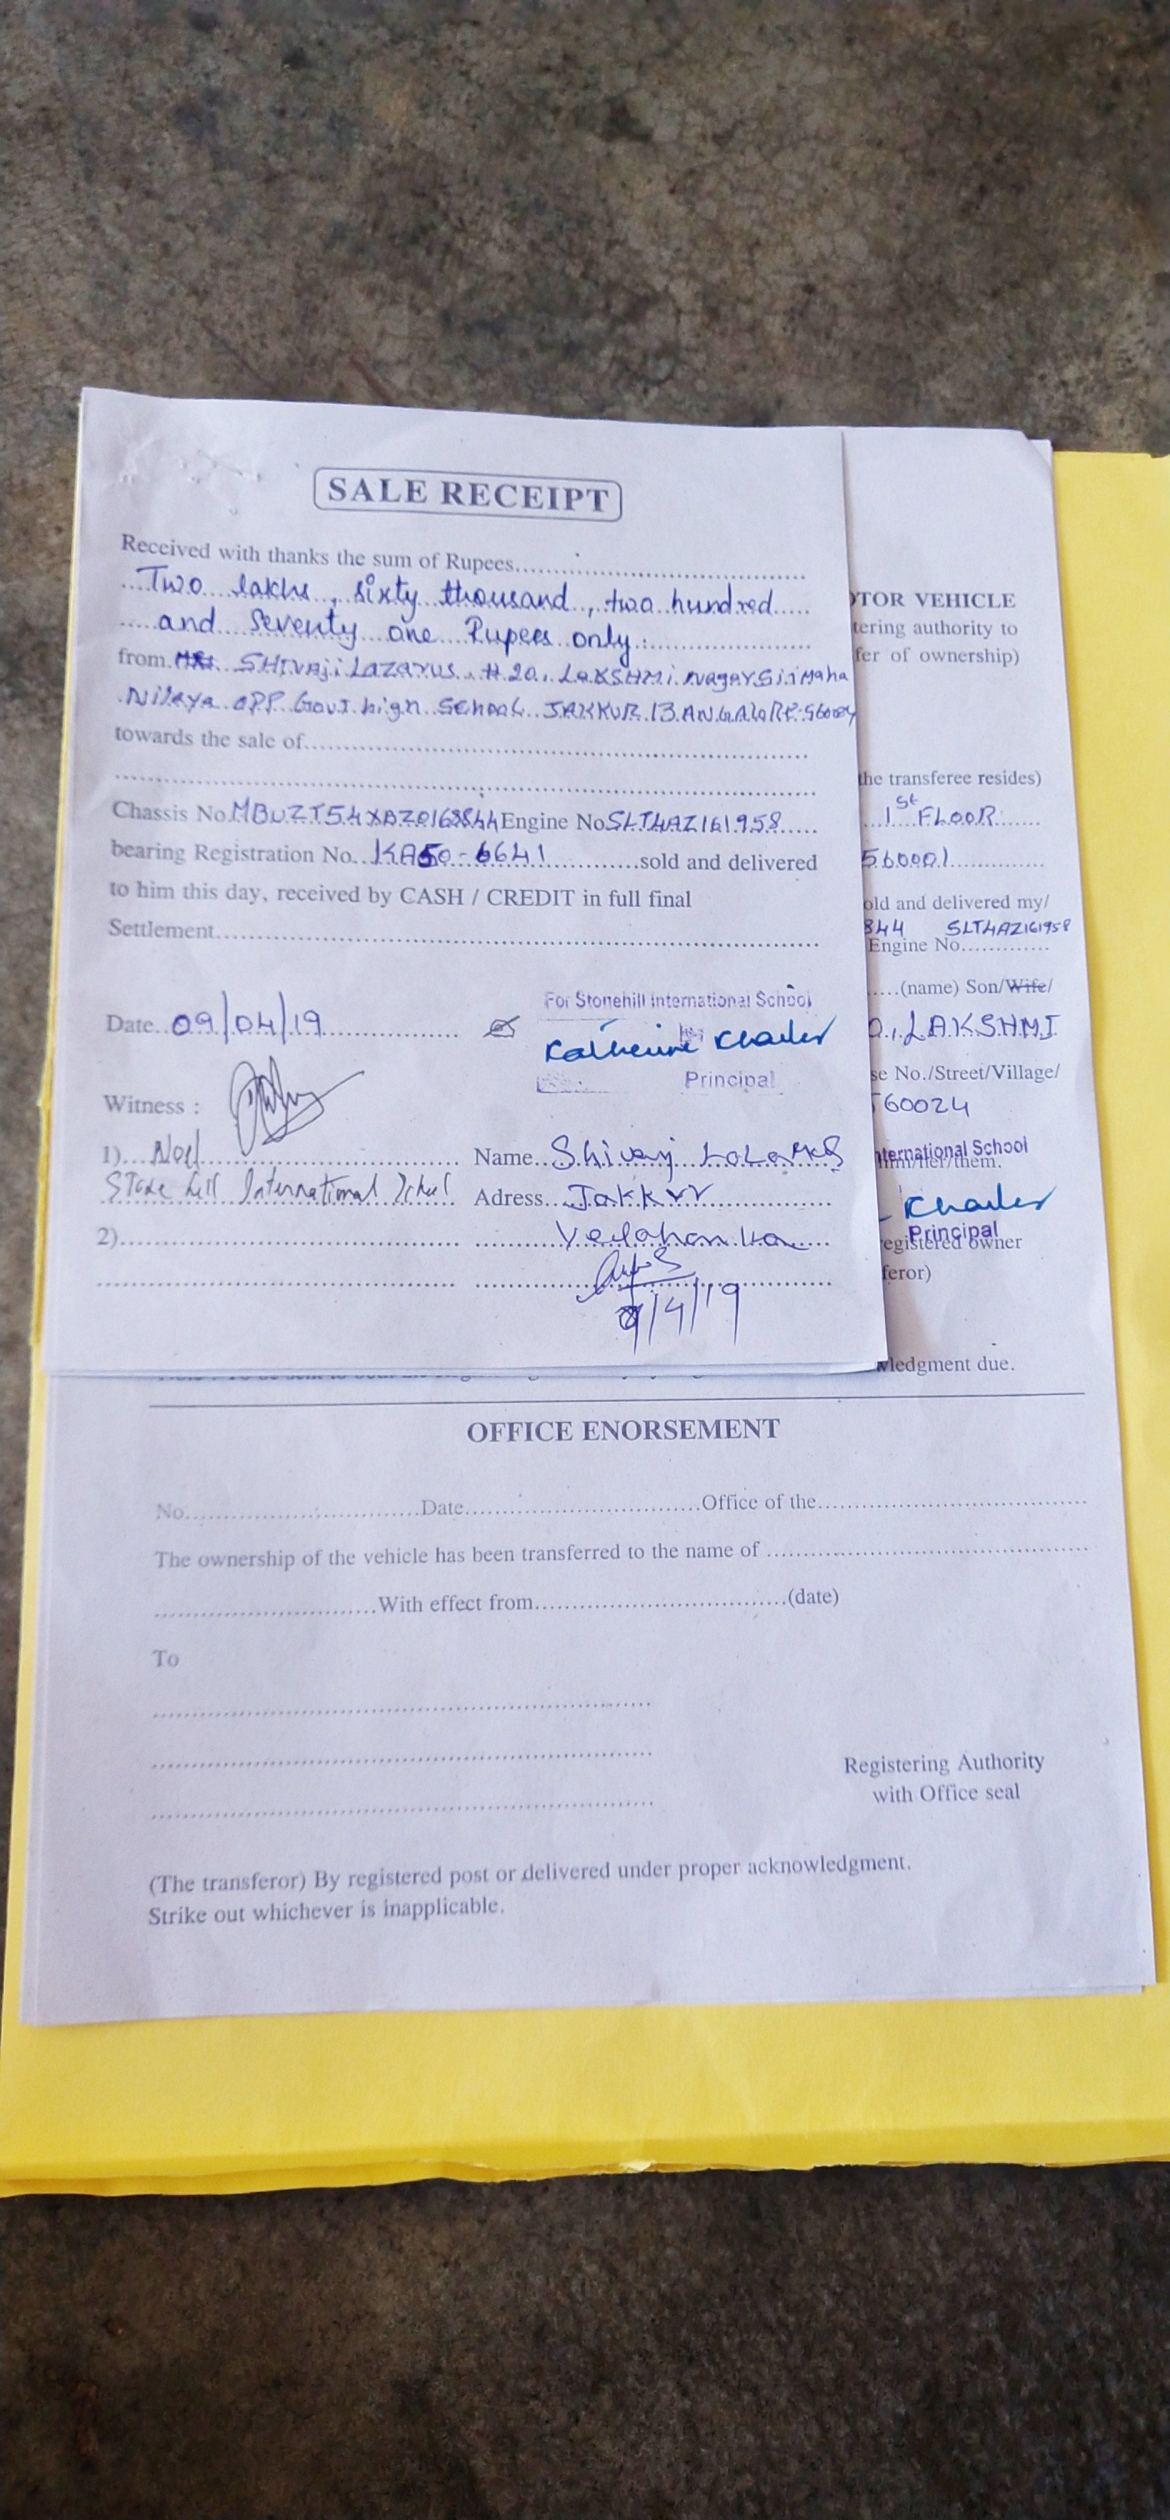 SALE RECEIPT
Received with thanks the sum of Rupees
Two lakhs, sixty thousand, two hundred
and Seventy one Rupees only.
from SHIVAji LAZARUS. # 20, LAKSHMi nagar Siri Maha
Nilaya OPP. Govt. high SCHOOL JAKKUR BANGALORE
towards the sale of
Chassis No. MBUZT54XAZ0168844 Engine No SLT4AZ161958
bearing Registration No. KA50-6641 sold and delivered
to him this day, received by CASH / CREDIT in full final
Settlement
For Stonehill International School
Date 09/04/19 Katherine Kharler
Principal
Witness :
1) Noel Name Shivaj LaLaRus
Stone hill International School Adress Jakkur
2) Yelahanka
9/4/19
OTOR VEHICLE
tering authority to
fer of ownership)
the transferee resides)
1st FLOOR
560001
old and delivered my/
844 SLT4AZ161958
Engine No
(name) Son/Wife/
0, LAKSHMI
se No./Street/Village/
560024
nternational School
him/her/them.
Kharler
Principal
registered owner
feror)
wledgment due.
OFFICE ENORSEMENT
No. Date Office of the
The ownership of the vehicle has been transferred to the name of
With effect from (date)
To
Registering Authority
with Office seal
(The transferor) By registered post or delivered under proper acknowledgment.
Strike out whichever is inapplicable.